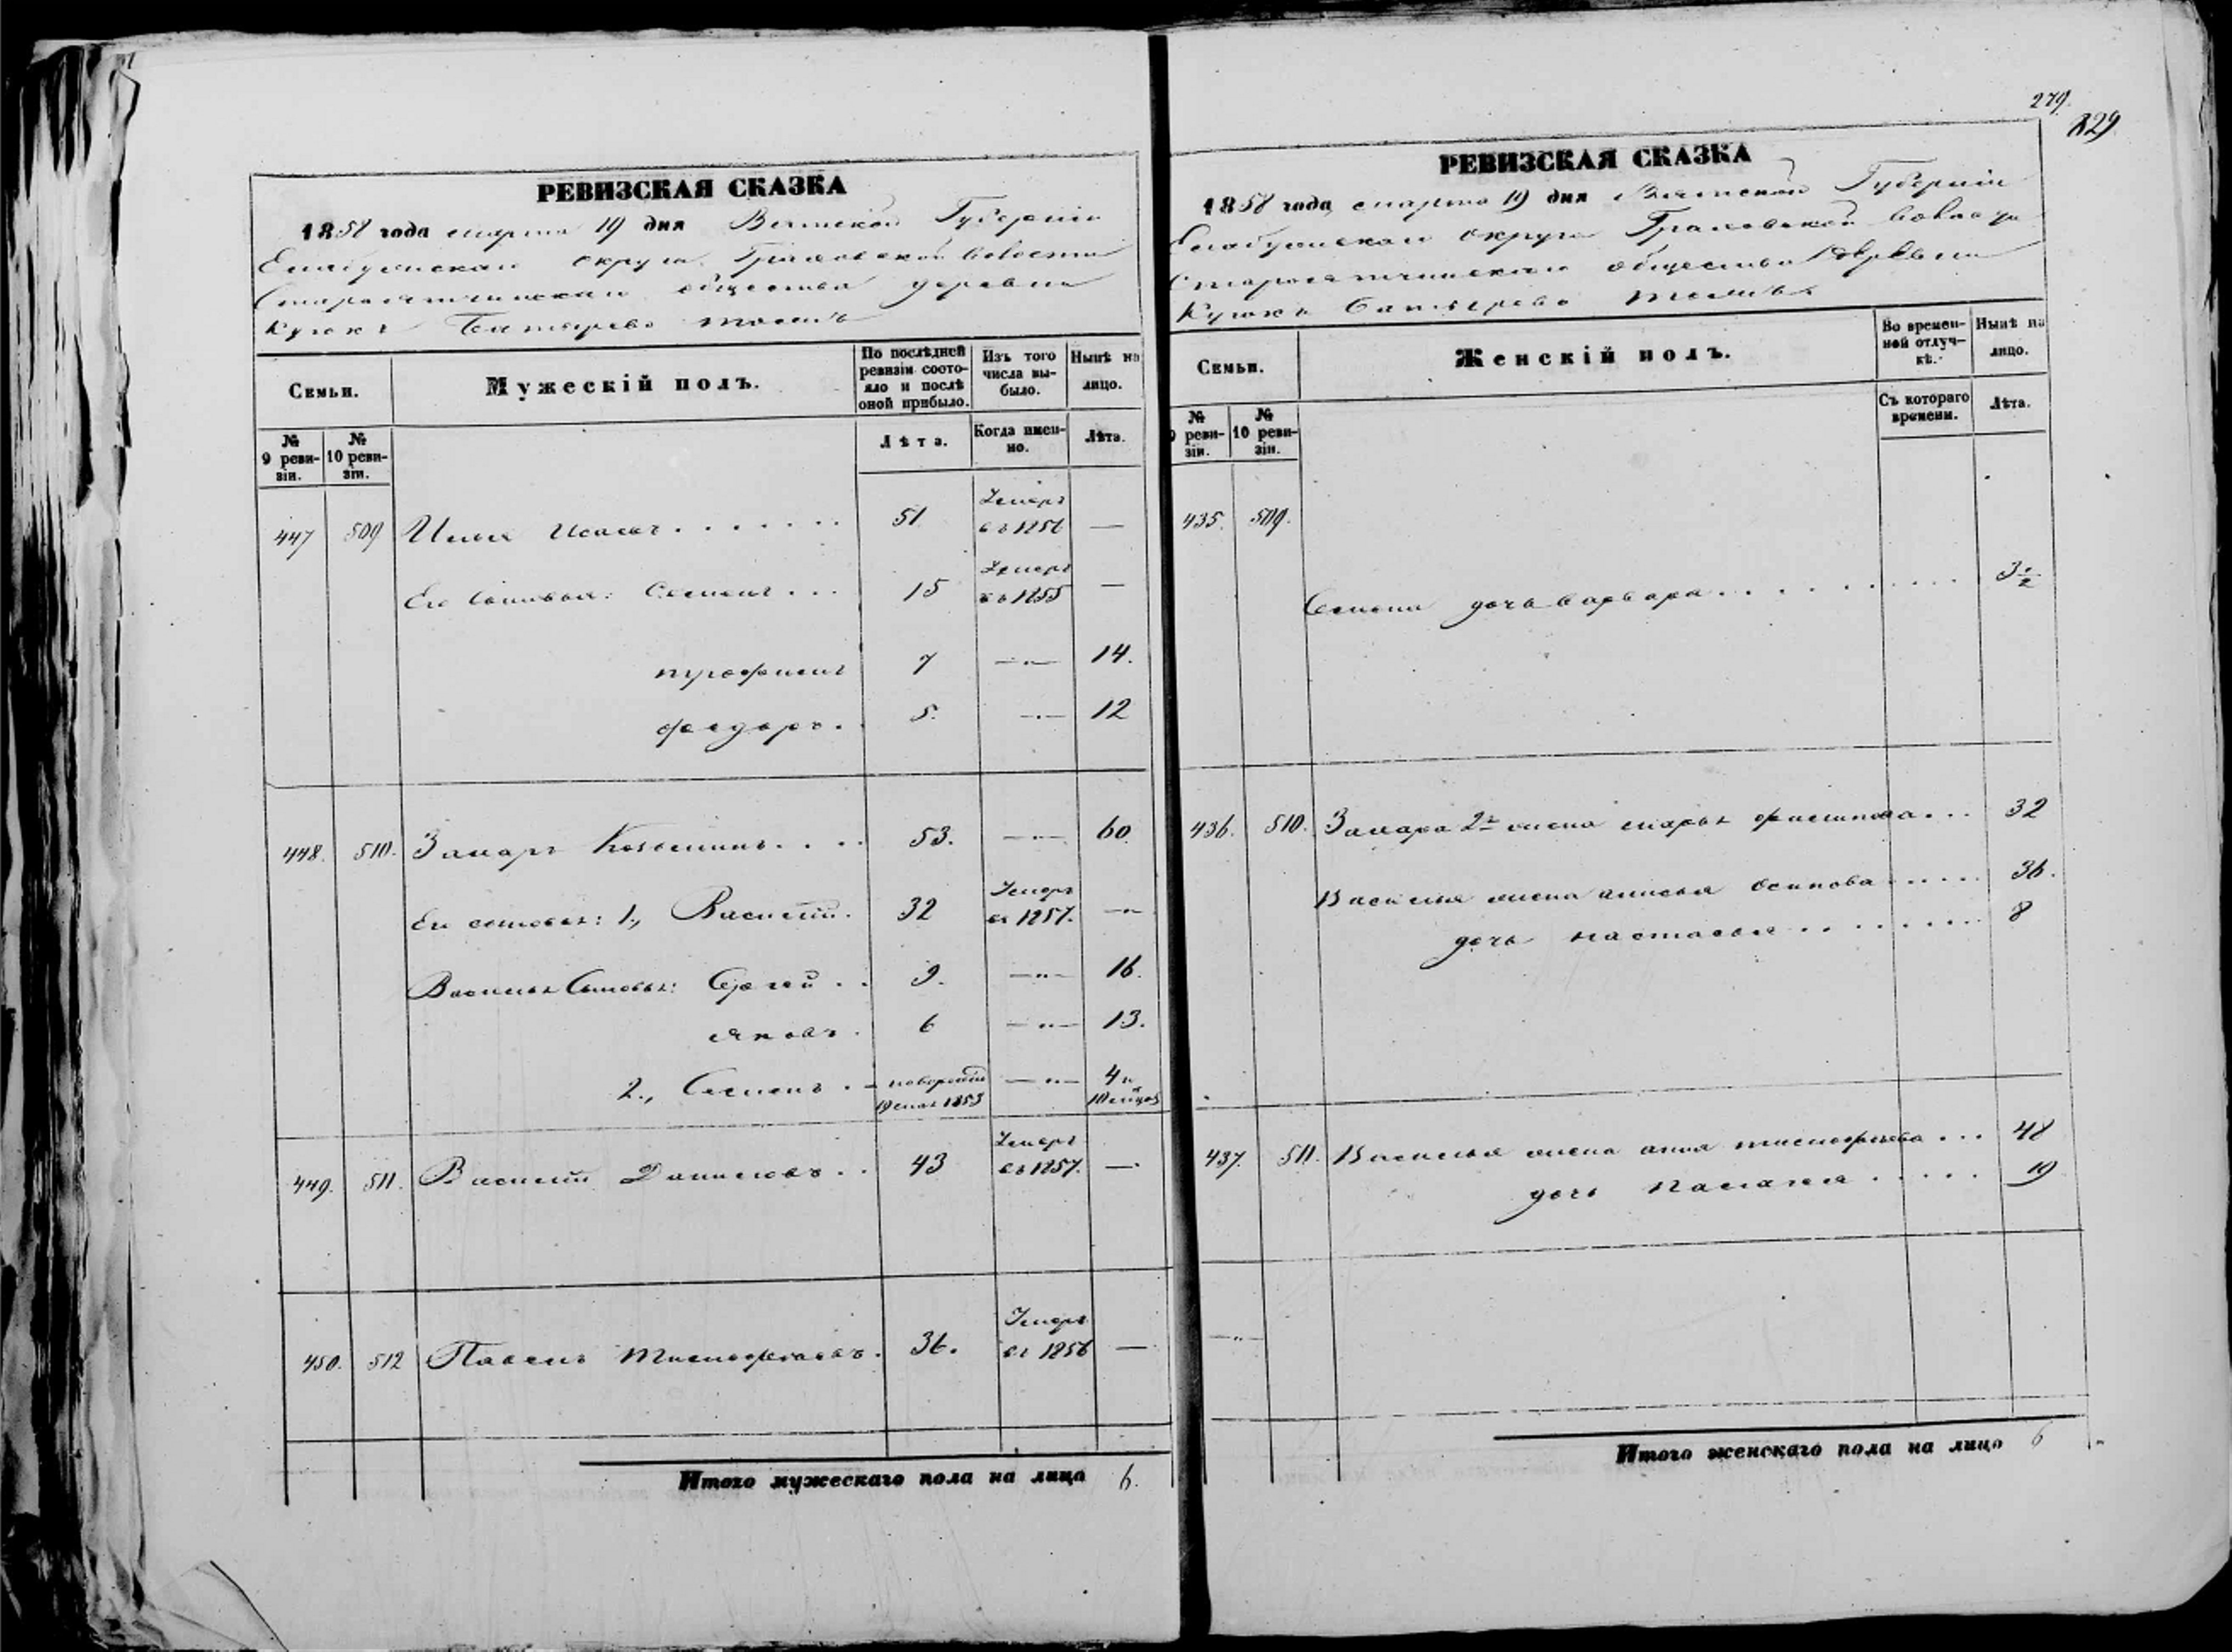 279.
829
РЕВИЗСКАЯ СКАЗКА
1858 года марта 19 дня Вятской Губерніи
Елабужскаго округа Граховской волости
общества деревни
РЕВИЗСКАЯ СКАЗКА
1858 года марта 19 дня Вятской Губерніи
Елабужскаго округа Граховской волости
общества деревни
Семьи.
Мужескій полъ.
По послѣдней ревизіи состояло и послѣ оной прибыло.
Изъ того числа выбыло.
Нынѣ на лицо.
№ 9 ревизіи.
№ 10 ревизіи.
Лѣта.
Когда именно.
Лѣта.
447 509 Илья Исаевъ 51 Умеръ въ 1856 —
Его сыновья: Семенъ 15 Умеръ въ 1855 —
трофимъ 7 —"— 14.
федоръ 5. —"— 12
448. 510. Захаръ Козьминъ 53. —"— 60.
Его сыновья: 1, Василій 32 Умеръ въ 1857. —"—
Василья Сыновья: Сергей 9. —"— 16.
яковъ 6 —"— 13.
2., Семенъ новорожден 1853 —"— 4 и 10 месяц
449. 511. Василій Даниловъ 43 Умеръ въ 1857. —
450. 512 Павелъ Тимофеевъ 36. Умеръ въ 1856 —
Итого мужескаго пола на лицо 6.
Семьи.
Женскій полъ.
Во временной отлучкѣ.
Нынѣ на лицо.
№ 9 ревизіи.
№ 10 ревизіи.
Съ котораго времени.
Лѣта.
435. 509.
Семена дочь варвара 3 1/2
436. 510. Захара 2я жена марья 32
Василья жена анисья осипова 36.
дочь настасья 8
437. 511. Василья жена анна тимофеева 48
дочь палагея 19
—"—
Итого женскаго пола на лицо 6